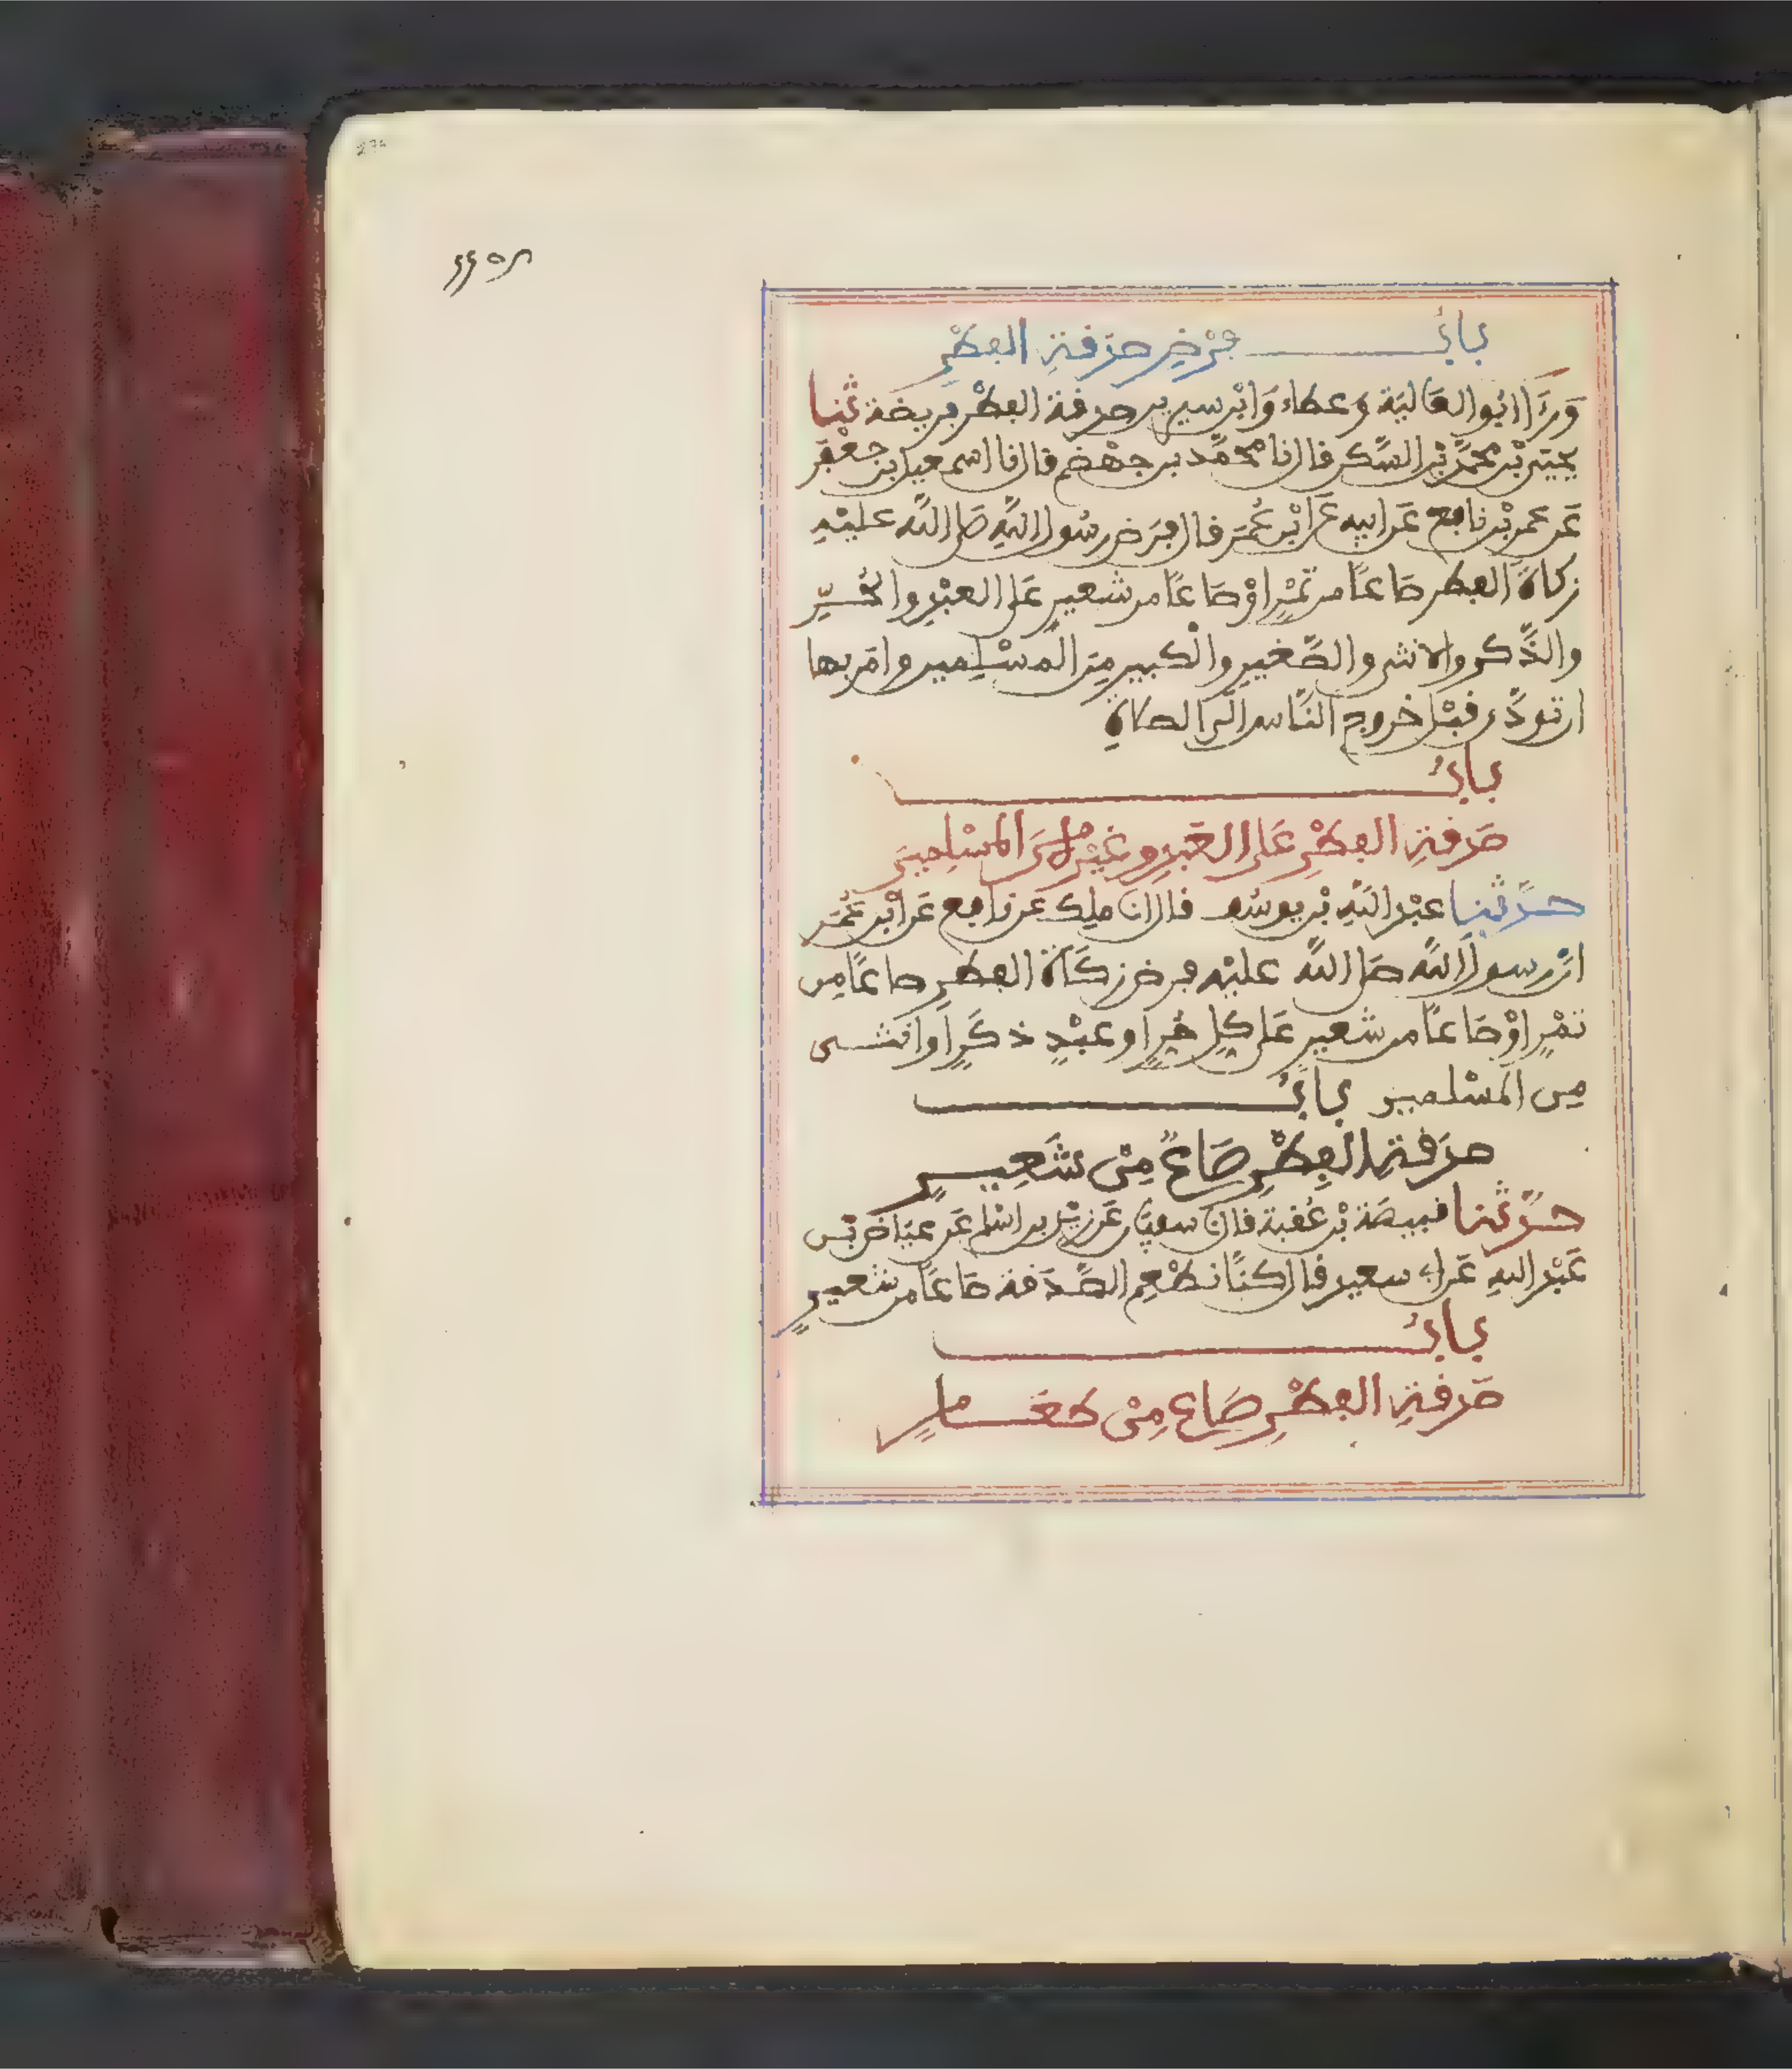 باب فرض صدقة الفطر
ورءا ابو العالية وعطاء وابن سيرين صدقة الفطر فريضة ثنا
يحيى بن محمد بن السكن قال نا محمد بن جهضم قال نا اسمعيل بن جعفر
عن عمر بن نافع عن ابيه عن ابن عمر قال فرض رسول الله صلى الله عليه
زكاة الفطر صاعا من تمر او صاعا من شعير على العبد والحر
والذكر والانثى والصغير والكبير من المسلمين وامر بها
ان تودى قبل خروج الناس الى الصلاة
باب
صدقة الفطر على العبد وغيره من المسلمين
حدثنا عبد الله بن يوسف قال انا ملك عن نافع عن ابن عمر
ان رسول الله صلى الله عليه فرض زكاة الفطر صاعا من
تمر او صاعا من شعير على كل حر او عبد ذكر او انثى
من المسلمين باب
صدقة الفطر صاع من شعير
حدثنا قبيصة بن عقبة قال نا سفين عن زيد بن اسلم عن عياض بن
عبد الله عن ابي سعيد قال كنا نطعم الصدقة صاعا من شعير
باب
صدقة الفطر صاع من طعام